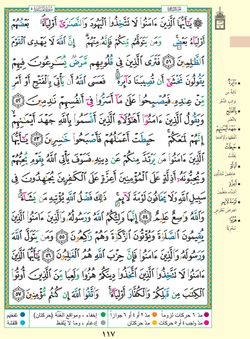 يَٰٓأَيُّهَا ٱلَّذِينَ ءَامَنُوا۟ لَا تَتَّخِذُوا۟ ٱلْيَهُودَ وَٱلنَّصَٰرَىٰٓ أَوْلِيَآءَ ۘ بَعْضُهُمْ
أَوْلِيَآءُ بَعْضٍ ۚ وَمَن يَتَوَلَّهُم مِّنكُمْ فَإِنَّهُۥ مِنْهُمْ ۗ إِنَّ ٱللَّهَ لَا يَهْدِى ٱلْقَوْمَ
ٱلظَّٰلِمِينَ ٥١ فَتَرَى ٱلَّذِينَ فِى قُلُوبِهِم مَّرَضٌ يُسَٰرِعُونَ فِيهِمْ
يَقُولُونَ نَخْشَىٰٓ أَن تُصِيبَنَا دَآئِرَةٌ ۚ فَعَسَى ٱللَّهُ أَن يَأْتِىَ بِٱلْفَتْحِ أَوْ أَمْرٍ
مِّنْ عِندِهِۦ فَيُصْبِحُوا۟ عَلَىٰ مَآ أَسَرُّوا۟ فِىٓ أَنفُسِهِمْ نَٰدِمِينَ
٥٢ وَيَقُولُ ٱلَّذِينَ ءَامَنُوٓا۟ أَهَٰٓؤُلَآءِ ٱلَّذِينَ أَقْسَمُوا۟ بِٱللَّهِ جَهْدَ أَيْمَٰنِهِمْ ۙ
إِنَّهُمْ لَمَعَكُمْ ۚ حَبِطَتْ أَعْمَٰلُهُمْ فَأَصْبَحُوا۟ خَٰسِرِينَ ٥٣ يَٰٓأَيُّهَا
ٱلَّذِينَ ءَامَنُوا۟ مَن يَرْتَدَّ مِنكُمْ عَن دِينِهِۦ فَسَوْفَ يَأْتِى ٱللَّهُ بِقَوْمٍ يُحِبُّهُمْ
وَيُحِبُّونَهُۥٓ أَذِلَّةٍ عَلَى ٱلْمُؤْمِنِينَ أَعِزَّةٍ عَلَى ٱلْكَٰفِرِينَ يُجَٰهِدُونَ فِى
سَبِيلِ ٱللَّهِ وَلَا يَخَافُونَ لَوْمَةَ لَآئِمٍ ۚ ذَٰلِكَ فَضْلُ ٱللَّهِ يُؤْتِيهِ مَن يَشَآءُ ۚ
وَٱللَّهُ وَٰسِعٌ عَلِيمٌ ٥٤ إِنَّمَا وَلِيُّكُمُ ٱللَّهُ وَرَسُولُهُۥ وَٱلَّذِينَ ءَامَنُوا۟
ٱلَّذِينَ يُقِيمُونَ ٱلصَّلَوٰةَ وَيُؤْتُونَ ٱلزَّكَوٰةَ وَهُمْ رَٰكِعُونَ ٥٥ وَمَن يَتَوَلَّ ٱللَّهَ
وَرَسُولَهُۥ وَٱلَّذِينَ ءَامَنُوا۟ فَإِنَّ حِزْبَ ٱللَّهِ هُمُ ٱلْغَٰلِبُونَ ٥٦ يَٰٓأَيُّهَا
ٱلَّذِينَ ءَامَنُوا۟ لَا تَتَّخِذُوا۟ ٱلَّذِينَ ٱتَّخَذُوا۟ دِينَكُمْ هُزُوًا وَلَعِبًا مِّنَ ٱلَّذِينَ أُوتُوا۟
ٱلْكِتَٰبَ مِن قَبْلِكُمْ وَٱلْكُفَّارَ أَوْلِيَآءَ ۚ وَٱتَّقُوا۟ ٱللَّهَ إِن كُنتُم مُّؤْمِنِينَ ٥٧
١١٧